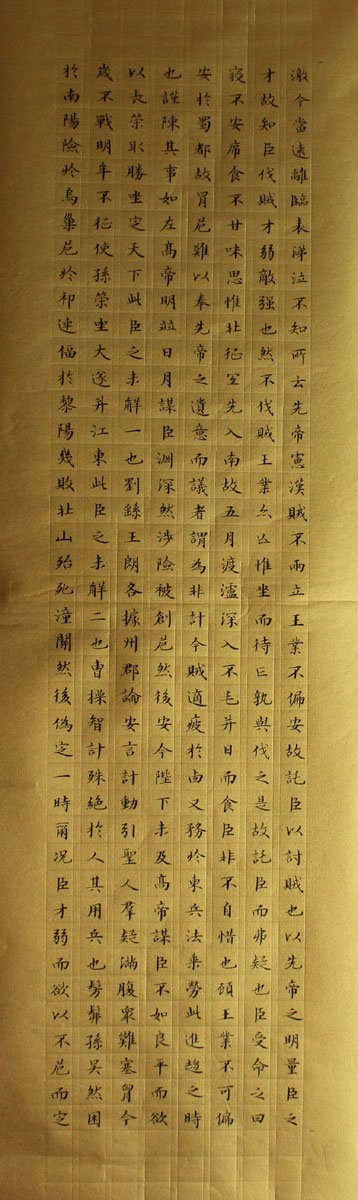 激今當遠離臨表涕泣不知所云先帝慮漢賊不兩立王業不偏安故託臣以討賊也以先帝之明量臣之
才故知臣伐賊才弱敵強也然不伐賊王業亦亡惟坐而待亡孰與伐之是故託臣而弗疑也臣受命之日
寢不安席食不甘味思惟北征宜先入南故五月渡瀘深入不毛并日而食臣非不自惜也顧王業不可偏
安於蜀都故冒危難以奉先帝之遺意而議者謂為非計今賊適疲於西又務於東兵法乘勞此進趨之時
也謹陳其事如左高帝明並日月謀臣淵深然涉險被創危然後安今陛下未及高帝謀臣不如良平而欲
以長策取勝坐定天下此臣之未解一也劉繇王朗各據州郡論安言計動引聖人羣疑滿腹衆難塞胷今
歲不戰明年不征使孫策坐大遂并江東此臣之未解二也曹操智計殊絕於人其用兵也髣髴孫吳然困
於南陽險於烏巢危於祁連偪於黎陽幾敗北山殆死潼關然後偽定一時爾況臣才弱而欲以不危而定